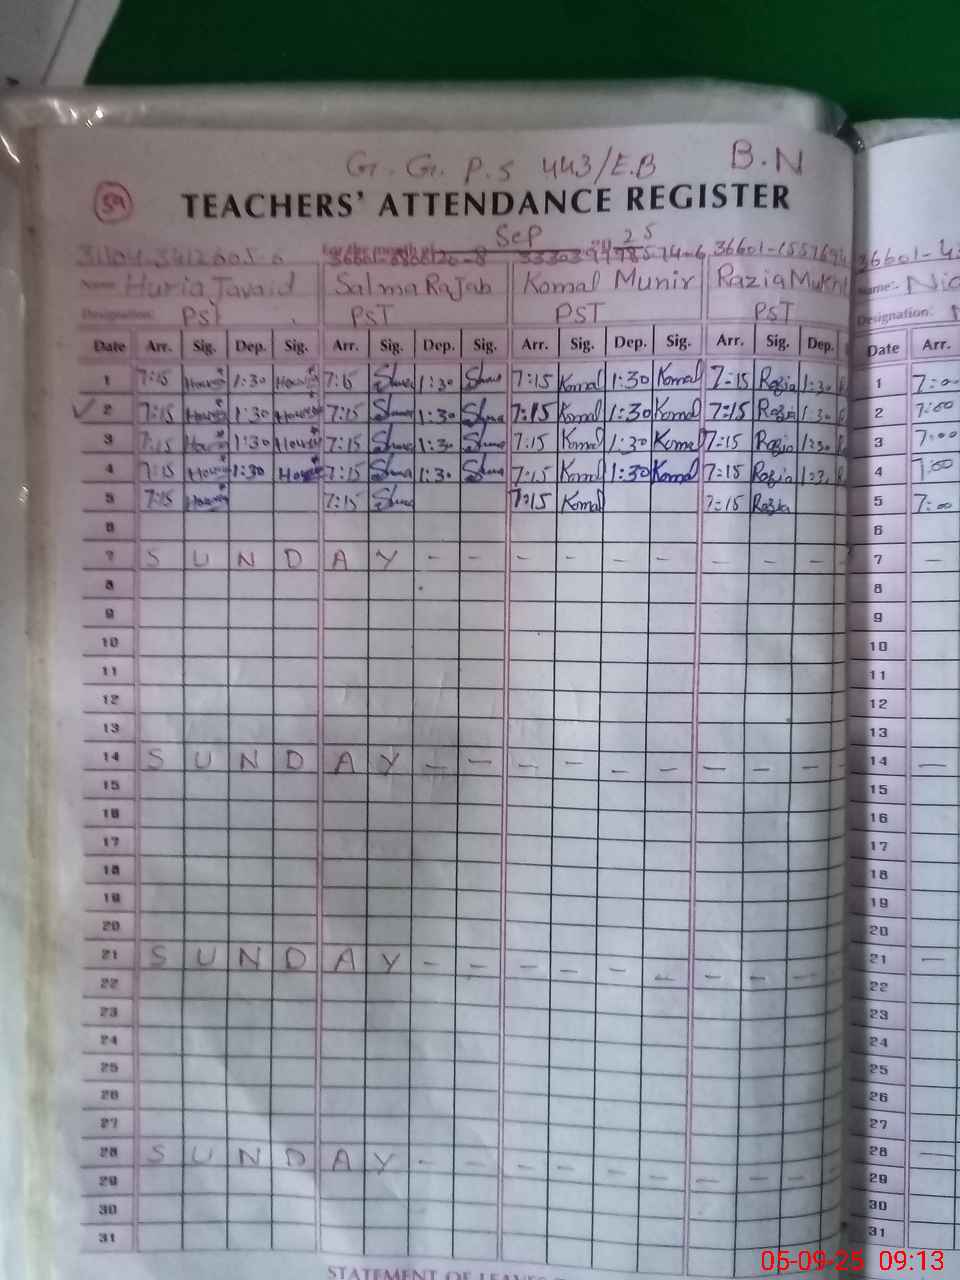 G. G. P. S 443/E.B B.N
59
TEACHERS' ATTENDANCE REGISTER
Sep 25
36601-
Name Huria Javaid Salma Rajab Komal Munir Razia Name:-
Designation: PST PST PST PST Designation:
Date Arr. Sig. Dep. Sig. Arr. Sig. Dep. Sig. Arr. Sig. Dep. Sig. Arr. Sig. Dep. Date Arr.
1 7:15 1:30 7:15 1:30 7:15 Komal 1:30 Komal 7:15 Razia 1:30 1 7:00
2 7:15 1:30 7:15 1:30 7:15 Komal 1:30 Komal 7:15 Razia 1:30 2 7:00
3 7:15 1:30 7:15 1:30 7:15 Komal 1:30 Komal 7:15 Razia 1:30 3 7:00
4 7:15 1:30 7:15 1:30 7:15 Komal 1:30 Komal 7:15 Razia 1:30 4 7:00
5 7:15 7:15 7:15 Komal 7:15 Razia 5 7:00
6 6
7 S U N D A Y - - - - - - - - - 7 -
8 8
9 9
10 10
11 11
12 12
13 13
14 S U N D A Y - - - - - - - - - 14 -
15 15
16 16
17 17
18 18
19 19
20 20
21 S U N D A Y - - - - - - - - - 21 -
22 22
23 23
24 24
25 25
26 26
27 27
28 S U N D A Y - - - - - - - - - 28 -
29 29
30 30
31 31
STATEMENT OF LEAVE
05-09-25 09:13